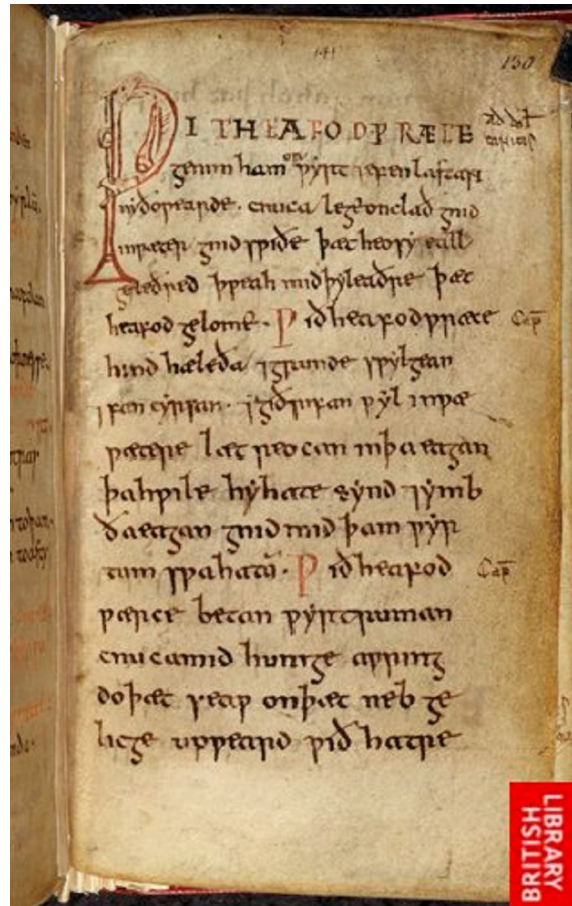 141
130
ǷIÐ HEAFODǷRÆCE
genim hamƿyrt ⁊efenlastan
nyðoƿearde · cnuca lege onclað gnid
inƿæter gnid sƿiðe þæt heo sy eall
geleðred þƿeah mid þy leaðre þæt
heafod gelome · Ƿið heafodƿræce
hind hæleða ⁊grunde sƿylgean
⁊fen cyrsan · ⁊giðrifan ƿyl inƿæ
ƿætere læt reocan inþa eagan
þa hƿile hy hate synd ⁊ymb
ða eagan gnid mid þam ƿyr
tum sƿa hatū · Ƿið heafod
ƿærce betan ƿyrtruman
cnuca mid hunige aƿring
do þæt seaƿ onþæt neb ge
licge uppeard ƿið hatre
Cap̄
Cap̄
BRITISH
LIBRARY